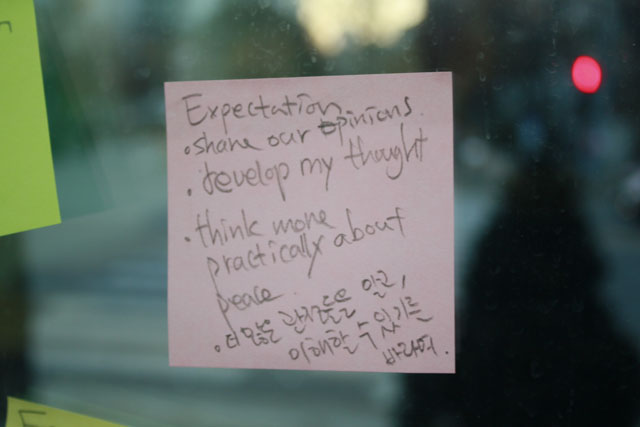 Expectation
• share our opinions.
• develop my thought
• think more
practically about
peace.
• 더 많은 관점들을 알고,
이해할 수 있기를
바라며.